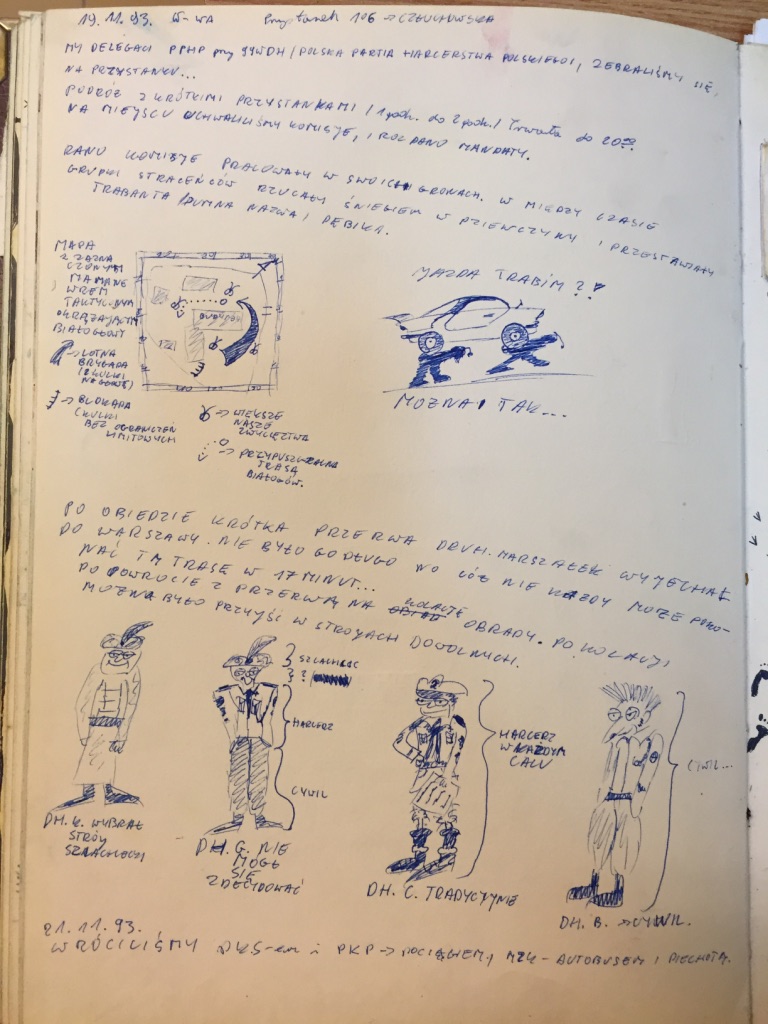 19.11.93. W-WA Przystanek 106 → CZŁUCHOWSKA
MY DELEGACI PPHP przy 99WDH /POLSKA PARTIA HARCERSTWA POLSKIEGO/, ZEBRALIŚMY SIĘ,
NA PRZYSTANKU...
PODRÓŻ Z KRÓTKIMI PRZYSTANKAMI /1 godz. do 2 godz./ trwała do 20°°
NA MIEJSCU UCHWALILIŚMY KOMISJE, I ROZDANO MANDATY.
RANO KOMISJE PRACOWAŁY W SWOICH GRONACH. W MIĘDZY CZASIE
GRUPKI STRACEŃCÓW RZUCAŁY ŚNIEGIEM W DZIEWCZYNY I PRZESTAWIAŁY
TRABANTA /DUMNA NAZWA/ DĘBIKA.
MAPA
Z ZAZNA
CZONYM
MAMANE
WREM
TAKTYCZNYM
OKRĄŻAJĄCYM
BIAŁOGŁOWY
→ LOTNA
BRYGADA
(2 KULKI
NA GŁOWĘ)
→ BLOKADA
(KULKI
BEZ OGRANICZEŃ
LIMITOWYCH
→ WIĘKSZE
NASZE
ZWYCIĘSTWA
→ PRZYPUSZCZALNA
TRASA
BIAŁOGŁÓW.
JAZDA TRABIM??
MOŻNA I TAK...
PO OBIEDZIE KRÓTKA PRZERWA DRUH. MARSZAŁEK WYJECHAŁ
DO WARSZAWY. NIE BYŁO GO DŁUGO NO CÓŻ NIE KAŻDY MOŻE POKO-
NAĆ TM TRASĘ W 17 MINUT...
PO POWROCIE Z PRZERWĄ NA OBIAD KOLACJĘ OBRADY. PO KOLACJI
MOŻNA BYŁO PRZYJŚĆ W STROJACH DOWOLNYCH.
SZLACHCIC
?
HARCERZ
CYWIL
HARCERZ
W KAŻDYM
CALU
CYWIL...
DH. K. WYBRAŁ
STRÓJ
SZLACHECKI
DH. G. NIE
MÓGŁ
SIĘ
ZDECYDOWAĆ
DH. C. TRADYCYJNIE
DH. B. → CYWIL.
21.11.93.
WRÓCILIŚMY PKS-em i PKP → POCIĄGIEM, MZK - AUTOBUSEM I PIECHOTĄ.